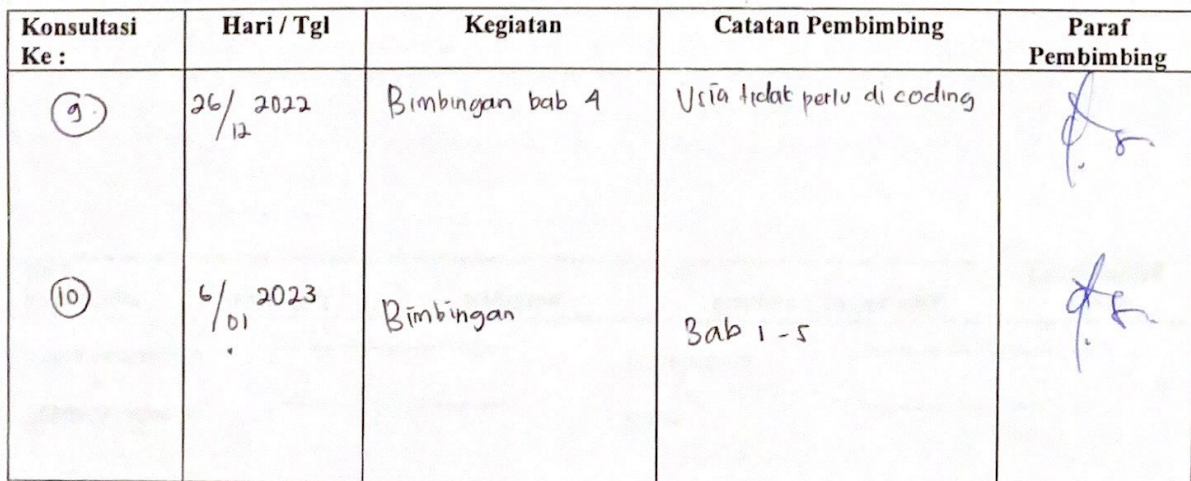 Konsultasi Ke : Hari / Tgl Kegiatan Catatan Pembimbing Paraf Pembimbing
9. 26/12 2022 Bimbingan bab 4 Usia tidak perlu di coding
10 6/01 2023 Bimbingan Bab 1 - 5